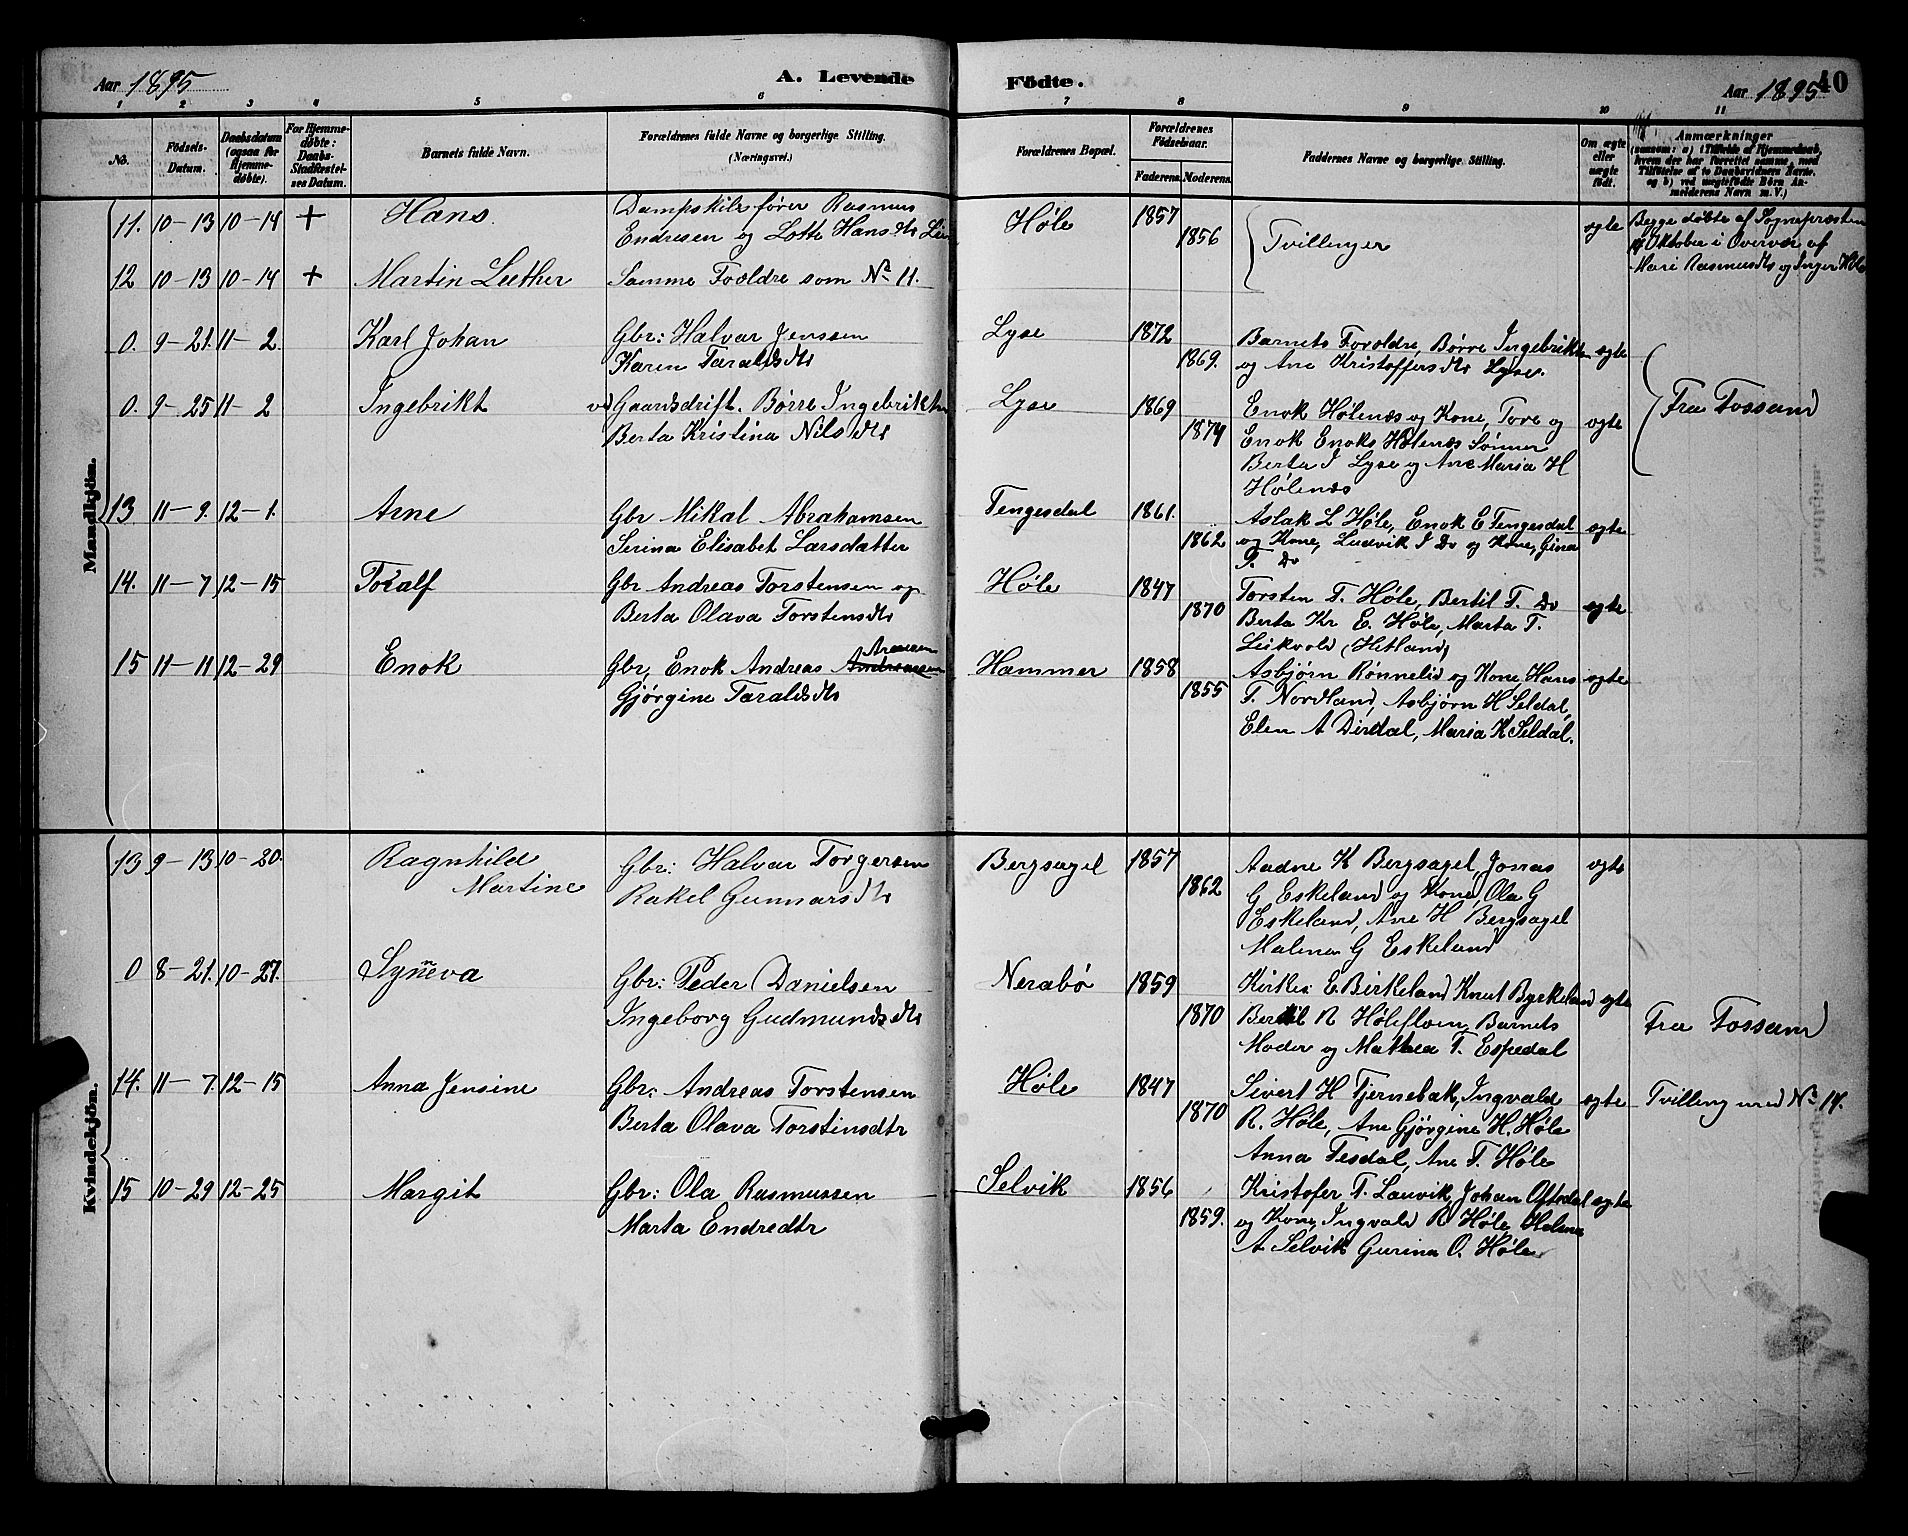 Aar 1895 A. Levende Födte. Aar 1895 40
1 2 3 4 5 6 7 8 9 10 11
No. Födsels-Datum. Daabsdatum (ogsaa for Hjemme-døbte). For Hjemme-døbte: Daabs-Stadfæstel-ses Datum. Barnets fulde Navn. Forældrenes fulde Navne og borgerlige Stilling. (Næringsvei.) Forældrenes Bopæl. Forældrenes Födselsaar. Faderens. Moderens. Faddernes Navne og borgerlige Stilling. Om ægte eller uægte født. Anmærkninger (saasom: a) i Tilfælde af Hjemmedaab, hvem der har forrettet samme, med Tilføielse af to Daabsvidners Navne, og b) ved uægtefødte Børn An-melderens Navn m. V.)
Mandkjön.
11. 10-13 10-14 + Hans. Dampskibsfører Rasmus
Endresen og Lotte Hansdtr
Høle 1857 1856 Tvillinger ægte
Begge døbte af Sognepræsten
Oktober i Overvær af
Mari Rasmusdtr og Inger Høle
12 10-13 10-14 + Martin Luther Samme Foældre som No 11.
0. 9-21. 11-2. Karl Johan Gbr: Halvar Jenssen
Karen Taraldsdtr
Lyse 1872 1869. Barnets Forældre, Børre Ingebrikts ægte
og Ane Kristoffersdtr Lyse.
0. 9-25 11-2 Ingebrikt Gaardsdrift. Børre Ingebriktsen
Berta Kristina Nilsdtr
Lyse 1869 1874 Enok Hølenæs og Kone, Tore og ægte
Enok Enoks Hølenæs Sønner
Berta I Lyse og Ane Maria H
Hølenæs
Fra Fossand
13 11-9. 12-1. Arne Gbr Mikal Abrahamsen
Serina Elisabet Larsdatter
Tengesdal 1861. 1862 Aslak L Høle, Enok E Tengesdal ægte
og Kone, Ludvik I Do og Kone, Gina
T. Do
14. 11-7 12-15 Toralf Gbr Andreas Torstensen og
Berta Olava Torstensdtr
Høle 1847 1870 Torsten T. Høle, Bertil T. Do ægte
Berta Kr E. Høle, Marta T.
Leikvold (Hetland)
15 11-11 12-29 Enok Gbr, Enok Andreas Andreassen
Gjørgine Taraldsdtr
Hammer 1858 1855 Asbjørn Rønnelid og Kone Hans ægte
T. Nordland, Asbjørn H Seldal,
Elen A Dirdal, Maria K Seldal.
Kvindekjön.
13 9-13 10-20. Ragnhild
Martine
Gbr: Halvar Torgersen
Rakel Gunnarsdtr
Bergsagel 1857 1862 Aadne K Bergsagel, Jonas ægte
G Eskeland og Kone, Ola G
Eskeland, Ane H Bergsagel
Malena G Eskeland
0 8-21. 10-27. Synneva Gbr: Peder Danielsen
Ingeborg Gudmundsdtr
Nerabø 1859 1870 Kirkes: E Birkeland Knut Byrkeland ægte
Bertil R Hølefloen, Barnets
Moder og Mathea T. Espedal
Fra Fossand
14. 11-7. 12-15 Anna Jensine Gbr: Andreas Torstensen
Berta Olava Torstinsdtr
Høle 1847 1870 Sivert H Tjernebak, Ingvald ægte
R. Høle, Ane Gjørgine H. Høle
Anna Tesdal, Ane T. Høle
Tvilling med No 14.
15 10-29 12-25 Margit Gbr: Ola Rasmussen
Marta Endredtr
Selvik 1856 1859. Kristofer T. Lauvik, Johan Oftedal ægte
og Kone, Ingvald R Høle, Helene
A Selvik Gurina O. Høle